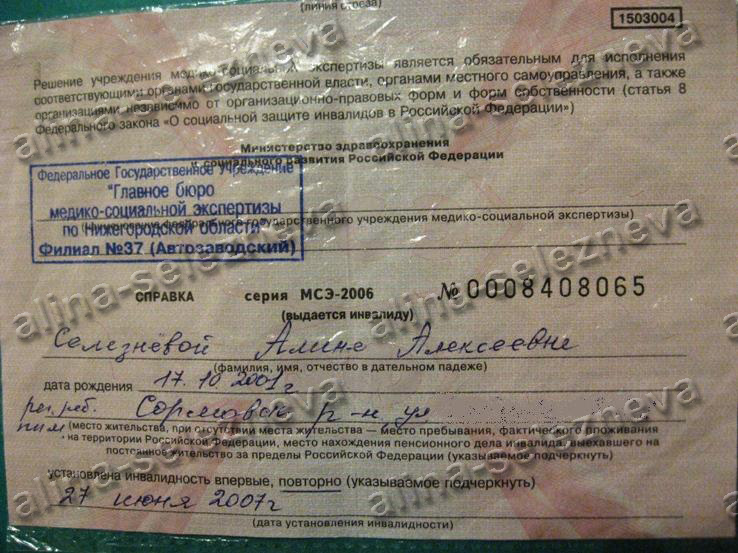 (линия отреза)
1503004
Решение учреждения медико-социальной экспертизы является обязательным для исполнения
соответствующими органами государственной власти, органами местного самоуправления, а также
организациями независимо от организационно-правовых форм и форм собственности (статья 8
Федерального закона «О социальной защите инвалидов в Российской Федерации»)
Министерство здравоохранения
и социального развития Российской Федерации
Федеральное Государственное Учреждение
"Главное бюро
медико-социальной экспертизы
по Нижегородской области"
Филиал №37 (Автозаводский)
государственного учреждения медико-социальной экспертизы)
СПРАВКА серия МСЭ-2006 № 0008408065
(выдается инвалиду)
Селезнёвой Алине Алексеевне
(фамилия, имя, отчество в дательном падеже)
дата рождения 17.10.2001г
Сормовск р-н ул
(место жительства, при отсутствии места жительства — место пребывания, фактического проживания
на территории Российской Федерации, место нахождения пенсионного дела инвалида, выехавшего на
постоянное жительство за пределы Российской Федерации (указываемое подчеркнуть)
установлена инвалидность впервые, повторно (указываемое подчеркнуть)
27 июня 2007г
(дата установления инвалидности)
alina-selezneva